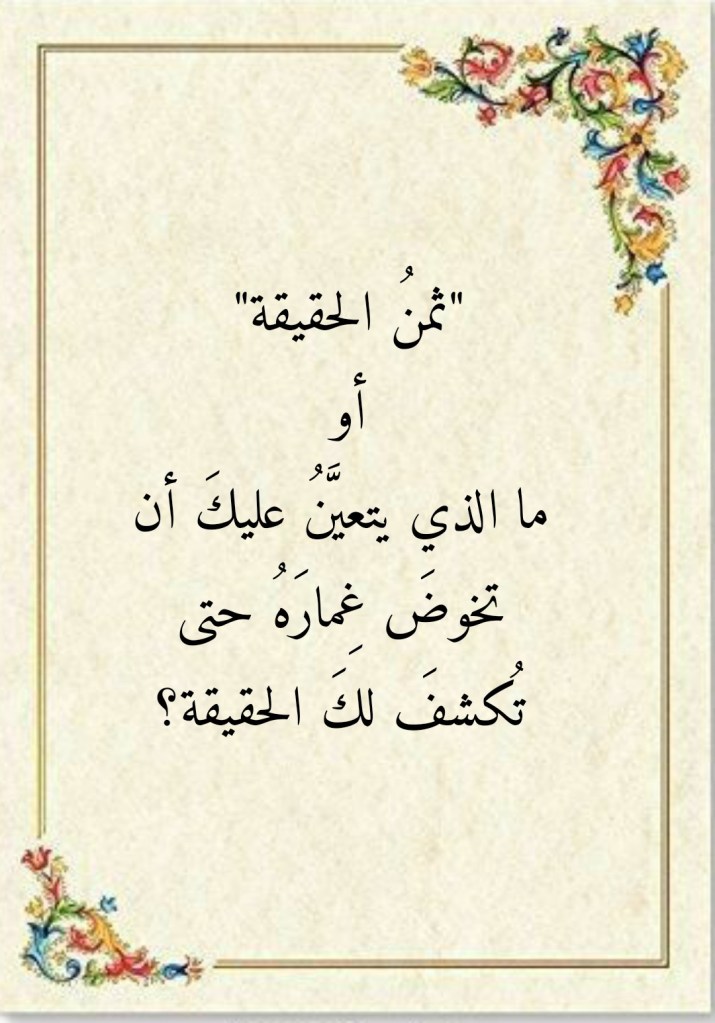 "ثمنُ الحقيقة"
أو
ما الذي يتعيَّنُ عليكَ أن
تخوضَ غِمارَهُ حتى
تُكشفَ لكَ الحقيقة؟